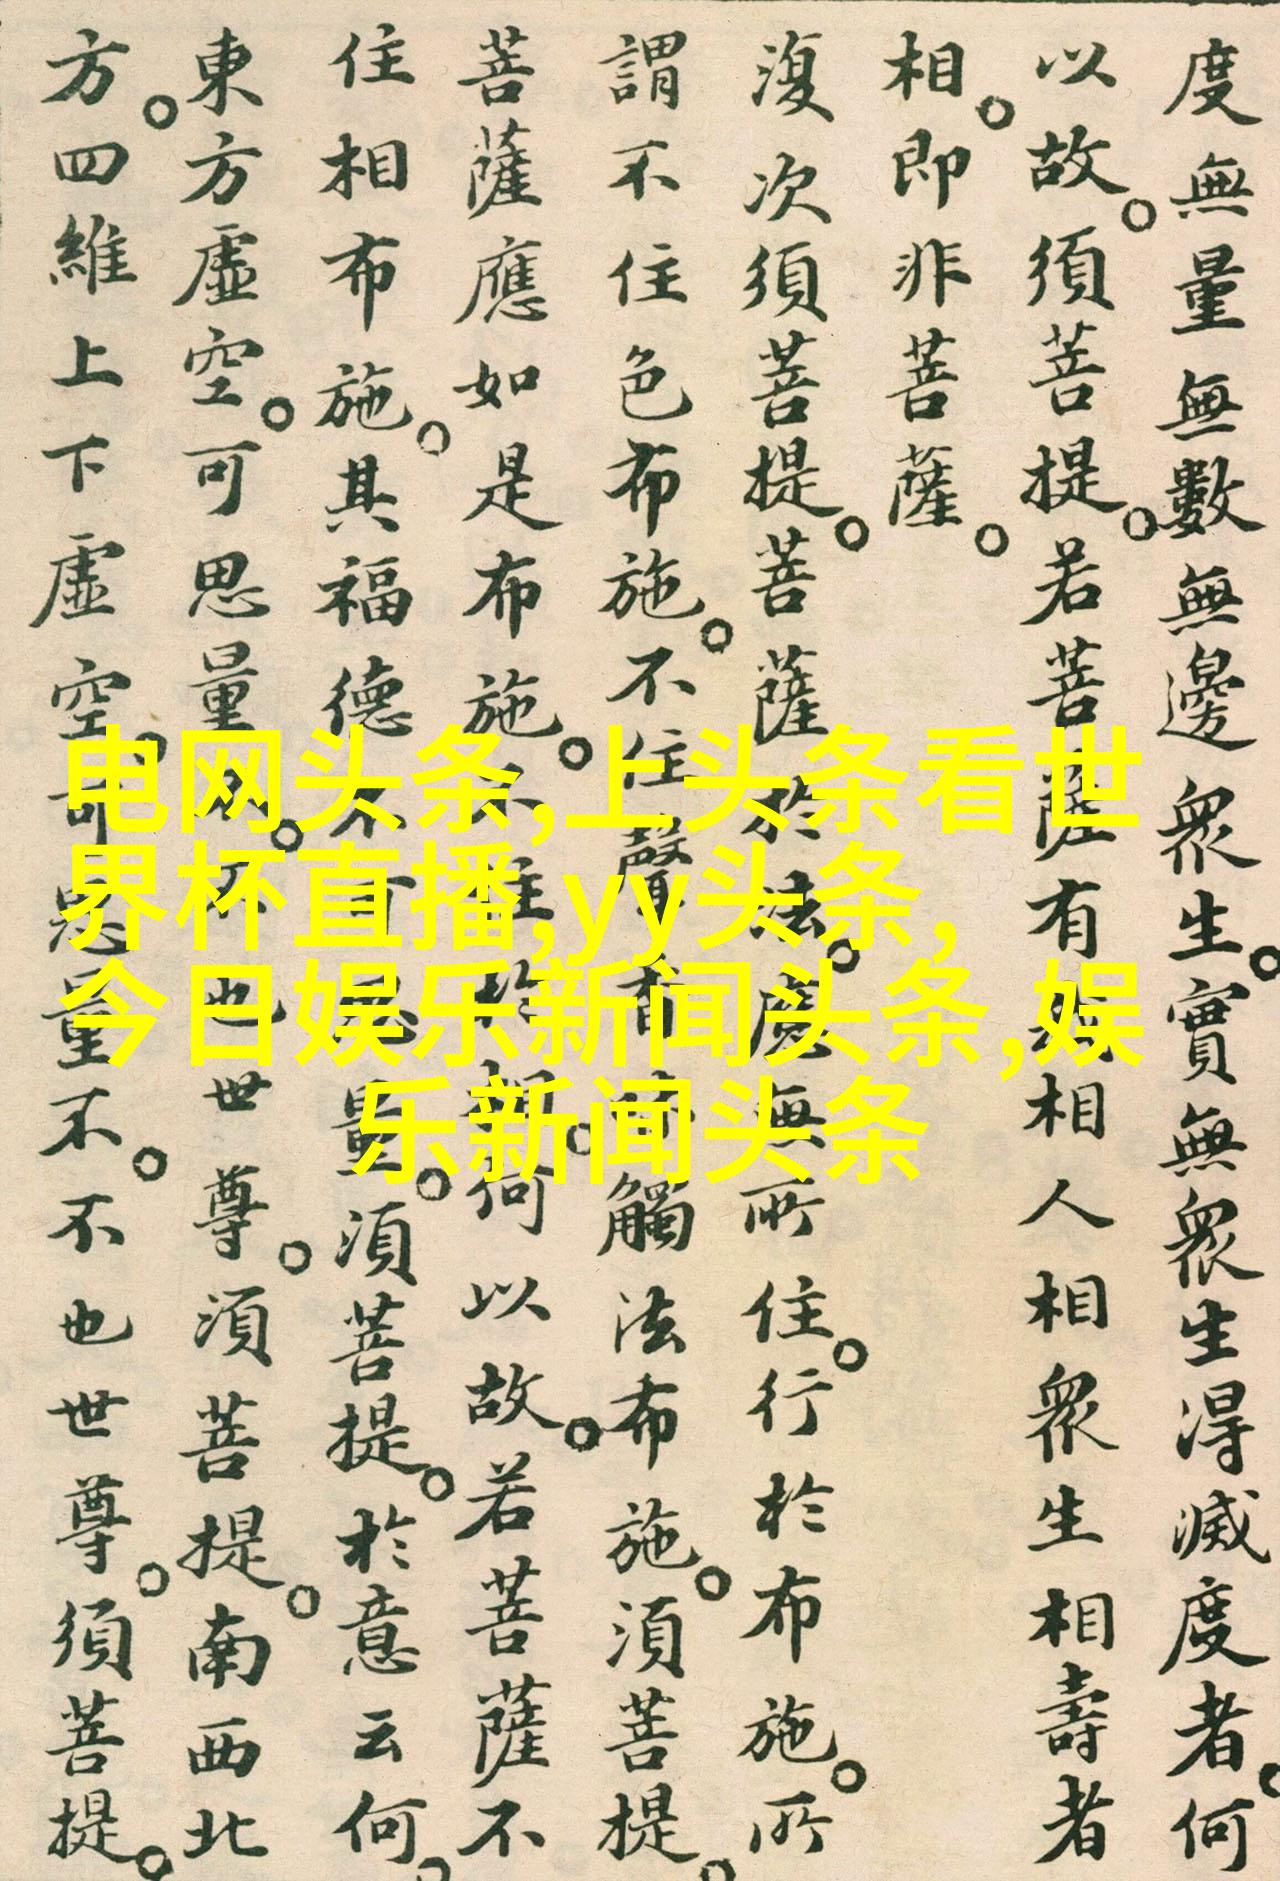 度無量無數無邊眾生。實無眾生得滅度者。何
以故。須菩提。若菩薩有我相人相眾生相壽者
相。即非菩薩。
復次須菩提。菩薩於法。應無所住。行於布施。所
謂不住色布施。不住聲香味觸法布施。須菩提。
菩薩應如是布施。不住於相。何以故。若菩薩不
住相布施。其福德不可思量。須菩提。於意云何。
東方虛空。可思量不。不也世尊。須菩提。南西北
方。四維上下虛空。可思量不。不也世尊。須菩提。
电网头条,上头条看世
界杯直播,yy头条,
今日娱乐新闻头条,娱
乐新闻头条